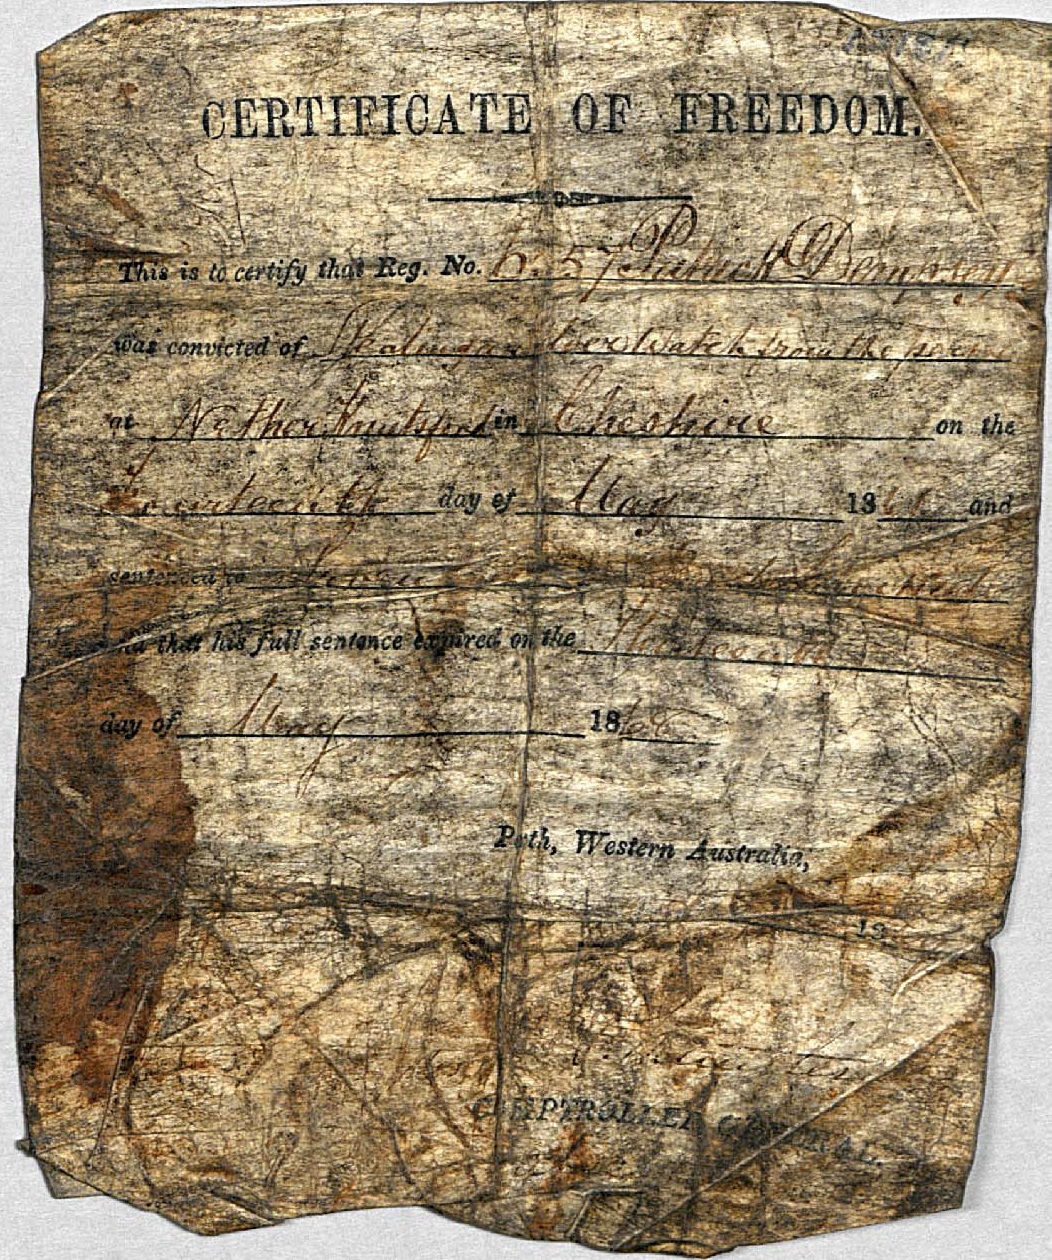 CERTIFICATE OF FREEDOM.
This is to certify that Reg. No. Patrick Dempsey
was convicted of Stealing a silver Watch from the person
at Nether Knutsford in Cheshire on the
Fourteenth day of May 186 and
sentenced to
that his full sentence expired on the Thirteenth
day of May 1868
Perth, Western Australia,
18
COMPTROLLER GENERAL.